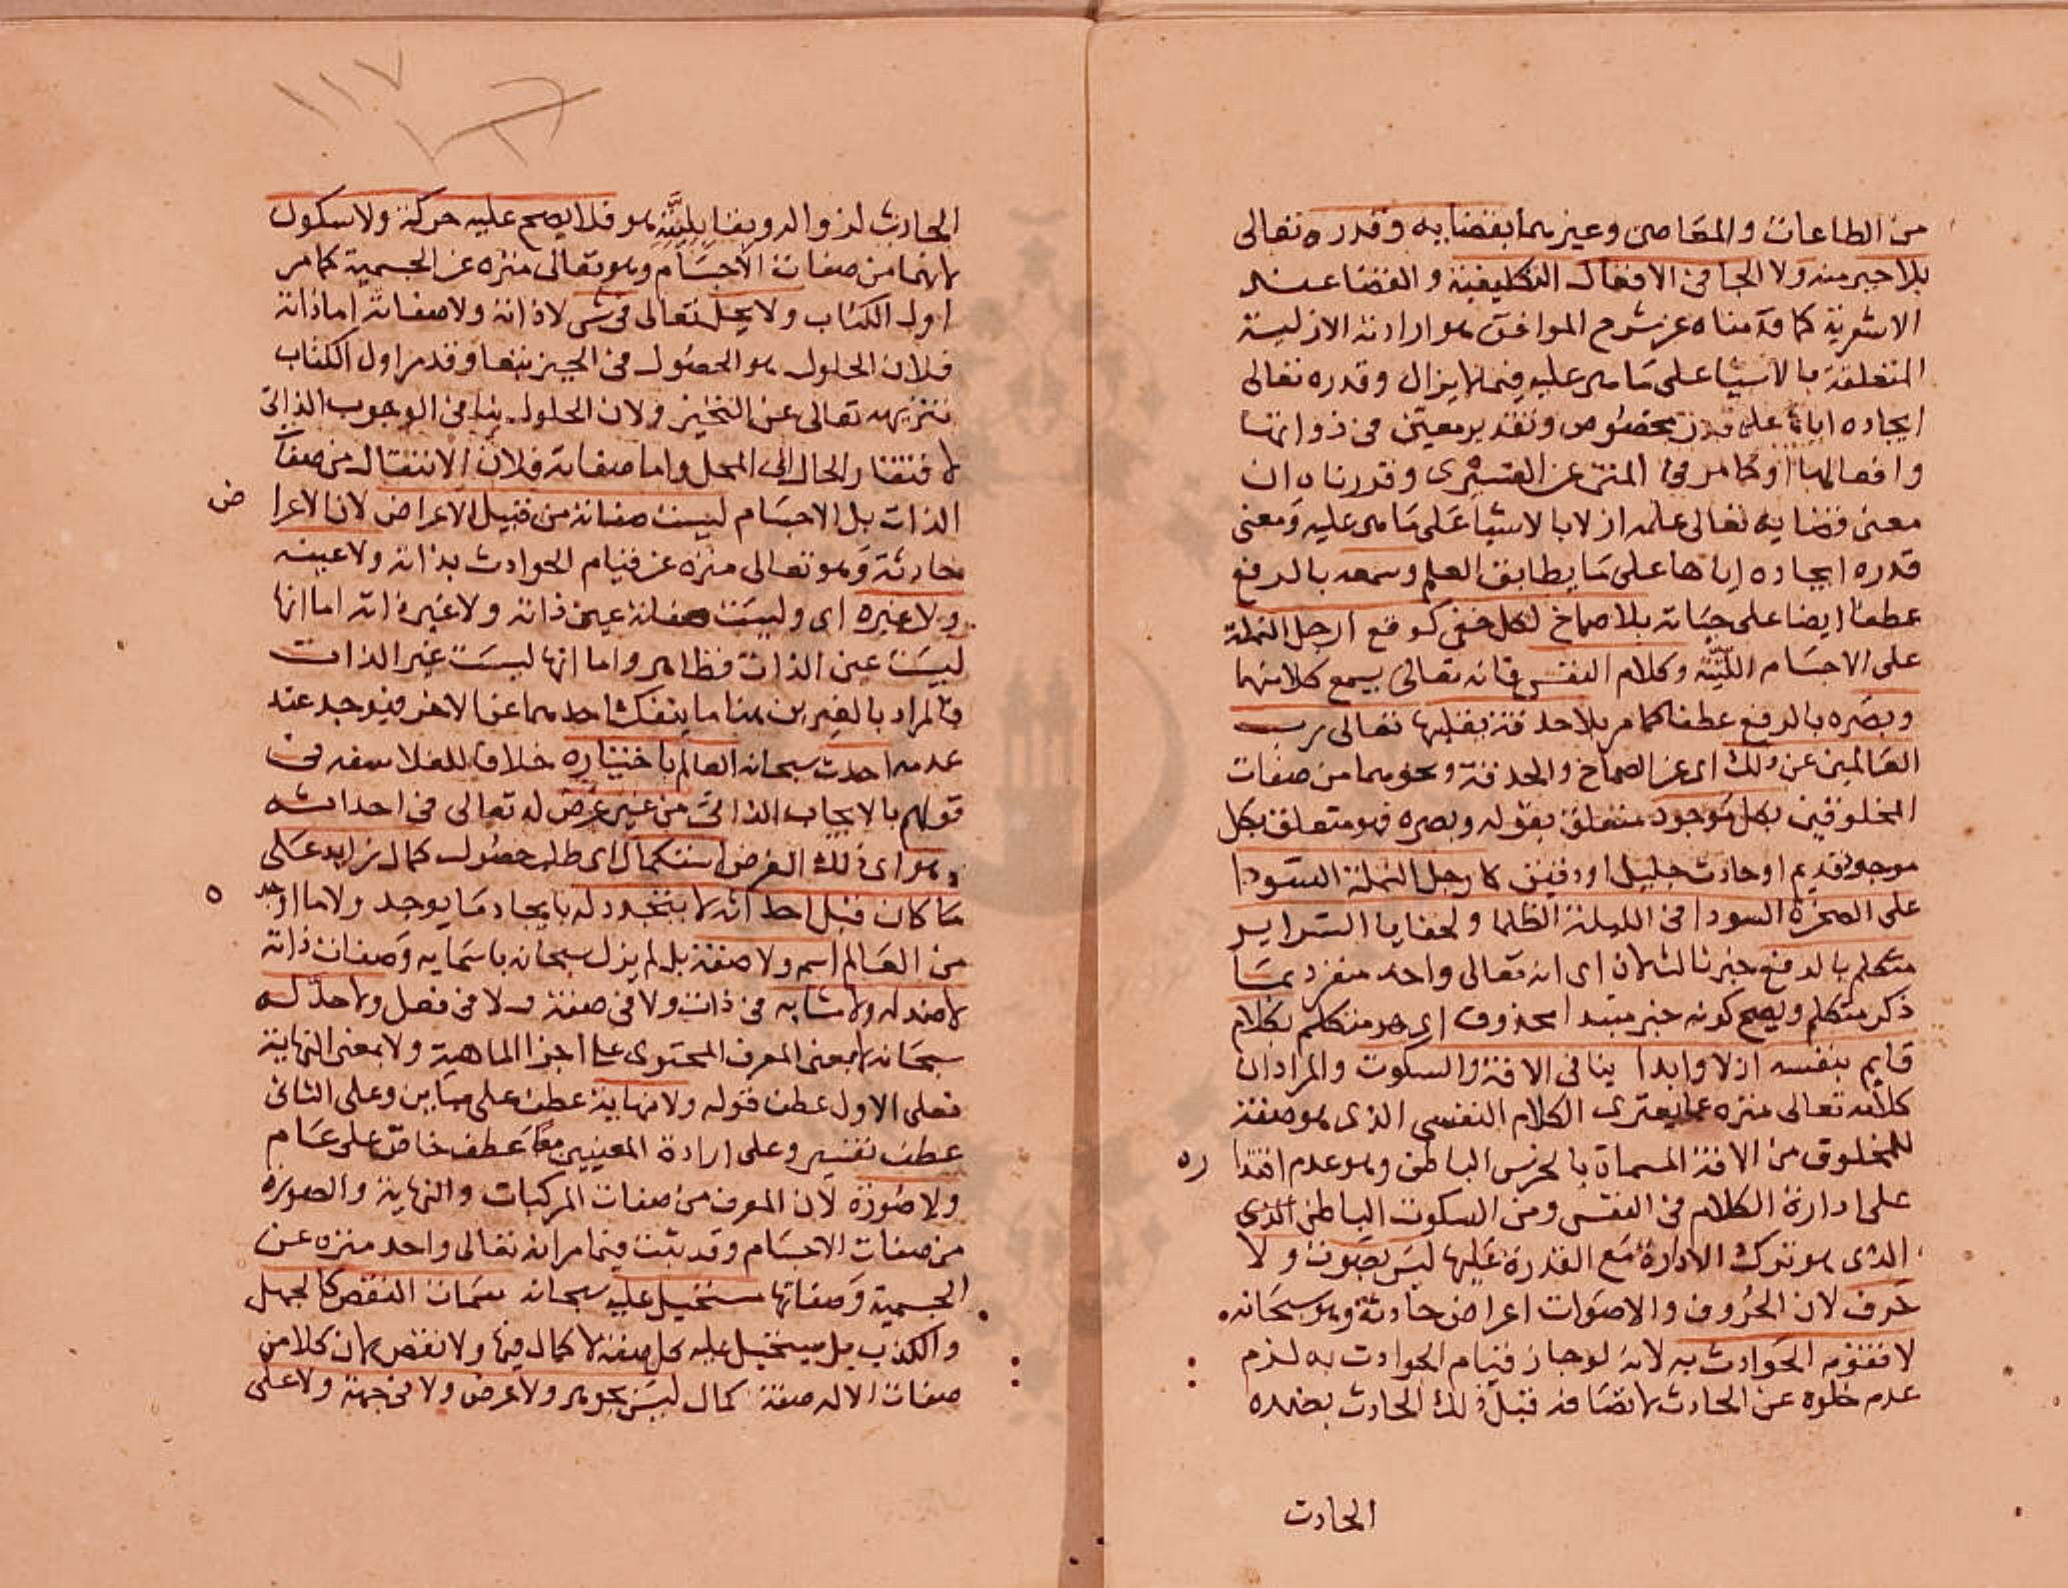 من الطاعات والمعاصى وغيرهما بقضايه وقدره تعالى
بلا جبر منه ولا الجا فى الافعال التكليفية والقضا عند
الاشعرية كما قدمناه عن شرح المواقف هو ارادته الازلية
المتعلقة بالاشيا على ما هى عليه فيما لا يزال وقدره تعالى
ايجاده اياها على قدر مخصوص وتقدير معين فى ذواتها
وافعالها او كما مر فى المتن عن القشيرى وقدرناه ان
معنى قضايه تعالى علمه ازلا بالاشيا على ما هى عليه ومعنى
قدره ايجاده اياها على ما يطابق العلم وسمعه بالرفع
عطفا ايضا على حياته بلا صماخ لكل خفى كوقع ارجل النملة
على الاجسام اللينة وكلام النفس فانه تعالى يسمع كلا منهما
وبصره بالرفع عطفا كما مر بلا حدقة يقلبها تعالى رب
العالمين عن ذلك اى عن الصماخ والحدقة ونحوهما من صفات
المخلوقين بكل موجود متعلق بقوله وبصره فهو متعلق بكل
موجود قديم او حادث جليل او دقيق كارجل النملة السودا
على الصخرة السودا فى الليلة الظلما ولخفايا السراير
متكلم بالرفع خبر ثالث لان اى انه تعالى واحد منفرد بما
ذكر متكلم ويصح كونه خبر مبتدا محذوف اى هو متكلم بكلام
قايم بنفسه ازلا وابدا ينافى الافة والسكوت والمراد ان
كلامه تعالى منزه عما يعترى الكلام النفسى الذى هو صفة
للمخلوق من الافة المسماة بالخرس الباطن وهو عدم اقتدا ره
على ادارة الكلام فى النفس ومن السكوت الباطن الذى
الذى هو ترك الادارة مع القدرة عليها ليس بصوت ولا
حرف لان الحروف والاصوات اعراض حادثة وهو سبحانه
لا تقوم الحوادث به لانه لو جاز قيام الحوادث به لزم
عدم خلوه عن الحادث لاتصافه قبل ذلك الحادث بضده
الحادث
١١٧
الحادث لزواله وبقابليته هو فلا يصح عليه حركة ولا سكون
لانهما من صفات الاجسام وهو تعالى منزه عن الجسمية كما مر
اول الكتاب ولا يحل تعالى فى شى لا ذاته ولا صفاته اما ذاته
فلان الحلول هو الحصول فى الحيز تبعا وقد مر اول الكتاب
تنزيهه تعالى عن التحيز ولان الحلول ينافى الوجوب الذاتى
لافتقار الحال الى المحل واما صفاته فلان الانتقال من صفات
الذات بل الاجسام ليست صفاته من قبيل الاعراض لان الاعرا ض
حادثة وهو تعالى منزه عن قيام الحوادث بذاته ولا عينه
ولا غيره اى وليست صفاته عين ذاته ولا غير ذاته اما انها
ليست عين الذات فظاهر واما انها ليست غير الذات
فالمراد بالغيرين هنا ما ينفك احدهما عن الاخر فيوجد عند
عدمه احدث سبحانه العالم باختياره خلافا للفلاسفه فى
قولهم بالايجاب الذاتى من غير غرض له تعالى فى احداثه
وهو اى ذلك الغرض استكمال اى طلب حصول كمال زايد على
ما كان قبل احداثه لا يتجدد له بايجاد ما يوجد ولا ما اوجد ه
من العالم اسم ولا صفة بل لم يزل سبحانه باسمايه وصفات ذاته
لا ضد له ولا مشابه فى ذات ولا فى صفة ولا فى فعل ولا حد له
سبحانه لا بمعنى المعرف المحتوى على اجزا الماهية ولا بمعنى النهاية
فعلى الاول عطف قوله ولا نهاية عطف على مباين وعلى الثانى
عطف تفسير وعلى ارادة المعنيين معا عطف خاص على عام
ولا صورة لان المعرف من صفات المركبات والنهاية والصورة
من صفات الاجسام وقد ثبت فيما مر انه تعالى واحد منزه عن
الجسمية وصفاتها مستحيل عليه سبحانه سمات النقص كالجهل
والكذب بل يستحيل عليه كل صفة لا كمال فيها ولا نقص لان كلا من
صفات الاله صفة كمال ليس بجوهر ولا عرض ولا فى جهة ولا على